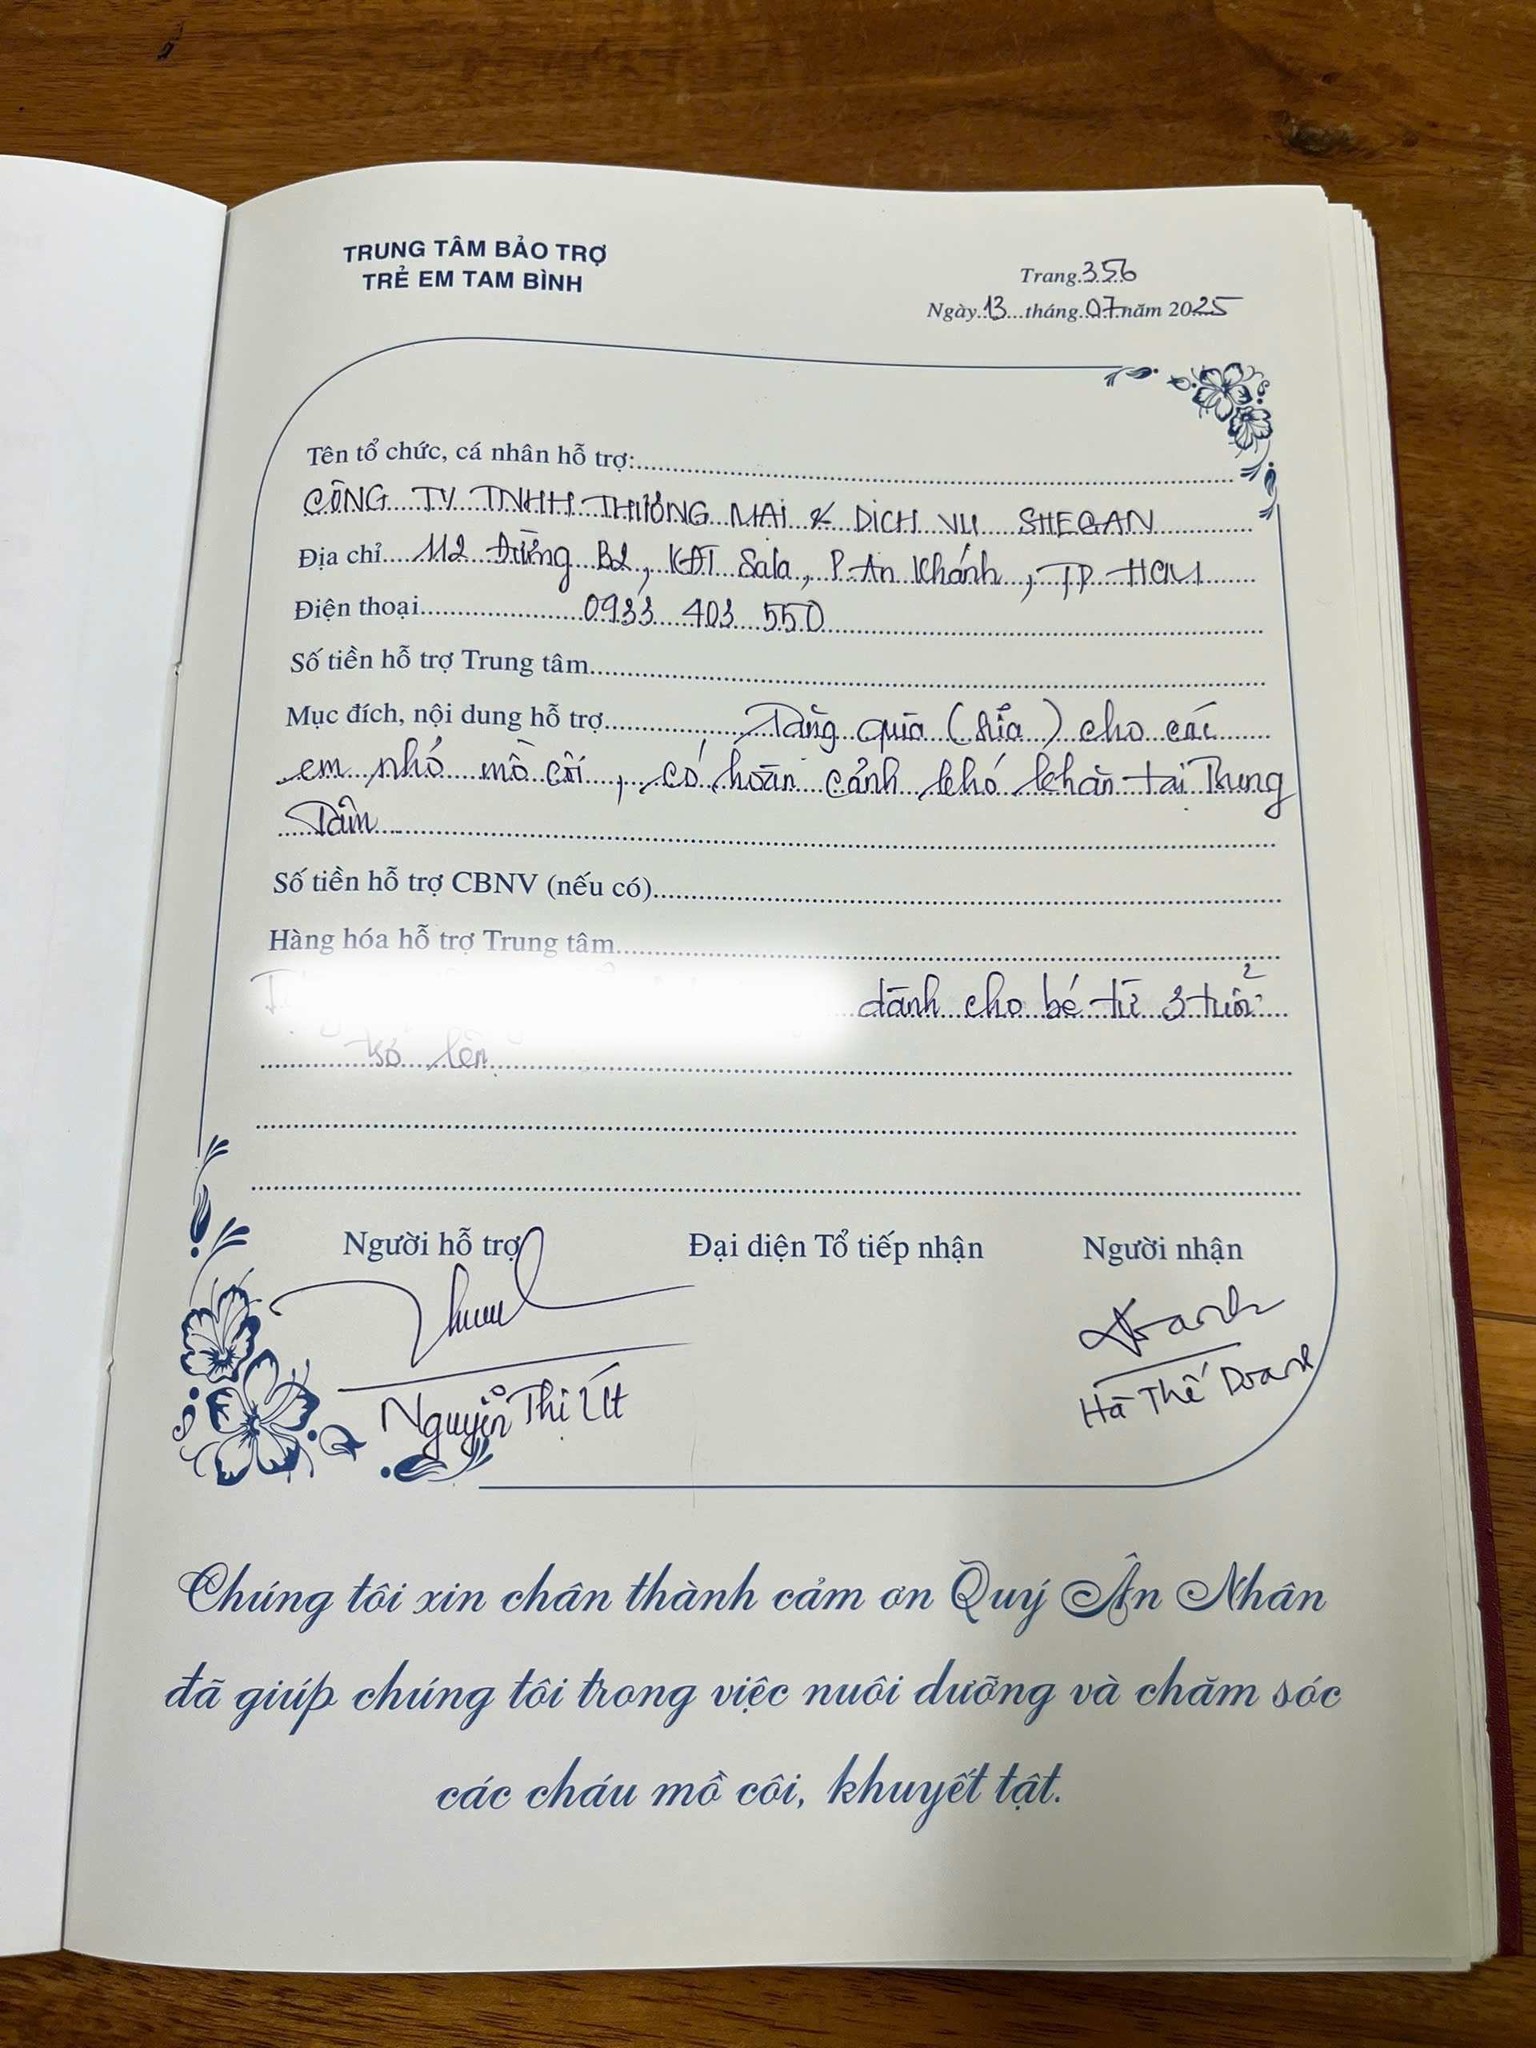 TRUNG TÂM BẢO TRỢ
TRẺ EM TAM BÌNH
Trang 356
Ngày 13 tháng 07 năm 2025
Tên tổ chức, cá nhân hỗ trợ:
CÔNG TY TNHH THƯƠNG MẠI & DỊCH VỤ SHEGAN
Địa chỉ 112 Đường B2, KĐT Sala, P. An Khánh, TP HCM
Điện thoại 0933 403 550
Số tiền hỗ trợ Trung tâm
Mục đích, nội dung hỗ trợ Tặng quà (sữa) cho các
em nhỏ mồ côi, có hoàn cảnh khó khăn tại Trung
Tâm
Số tiền hỗ trợ CBNV (nếu có)
Hàng hóa hỗ trợ Trung tâm
dành cho bé từ 3 tuổi
trở lên
Người hỗ trợ Đại diện Tổ tiếp nhận Người nhận
Nguyễn Thị Út Hà Thế Doanh
Chúng tôi xin chân thành cảm ơn Quý Ân Nhân
đã giúp chúng tôi trong việc nuôi dưỡng và chăm sóc
các cháu mồ côi, khuyết tật.